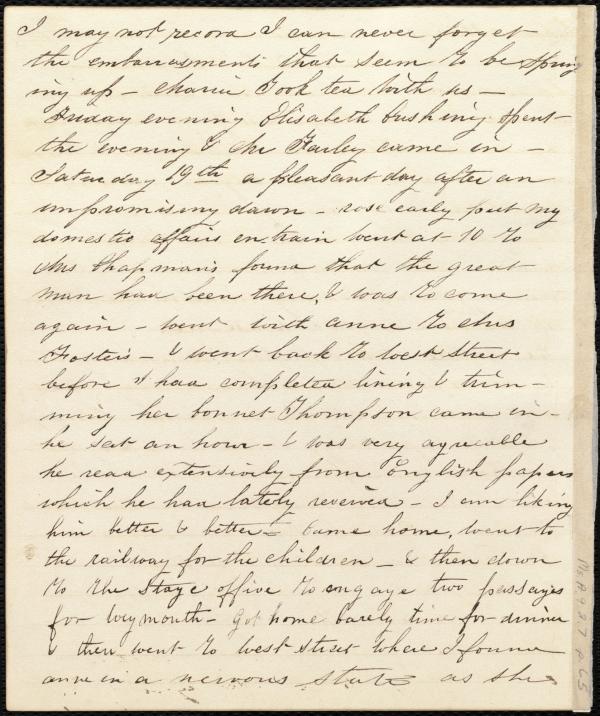 I may not record I can never forget
the embarrasments that seem to be spring
ing up - Maria Took tea with us -
Friday evening Elisabeth Cushing spent
the evening & Mr Farley came in -
Saturday 19th a pleasant day after an
unpromising dawn - rose early put my
domestic affairs en train went at 10 to
Mrs Chapman's found that the great
man had been there, & was to come
again - went with anne to Mrs
Foster's - & went back to West Street
before I had completed lining & trim-
ming her bonnet Thompson came in -
he sat an hour - & was very agreeable
he read extensively from English papers
which he had lately received - I am liking
him better & better - Came home, went to
the railway for the children - & then down
to the Stage office to engage two passages
for Weymouth - Got home barely time for dinner
& then went to West Street where I found
anne in a nervous state as she
Ms. A. 9. 2. 7 p. 65